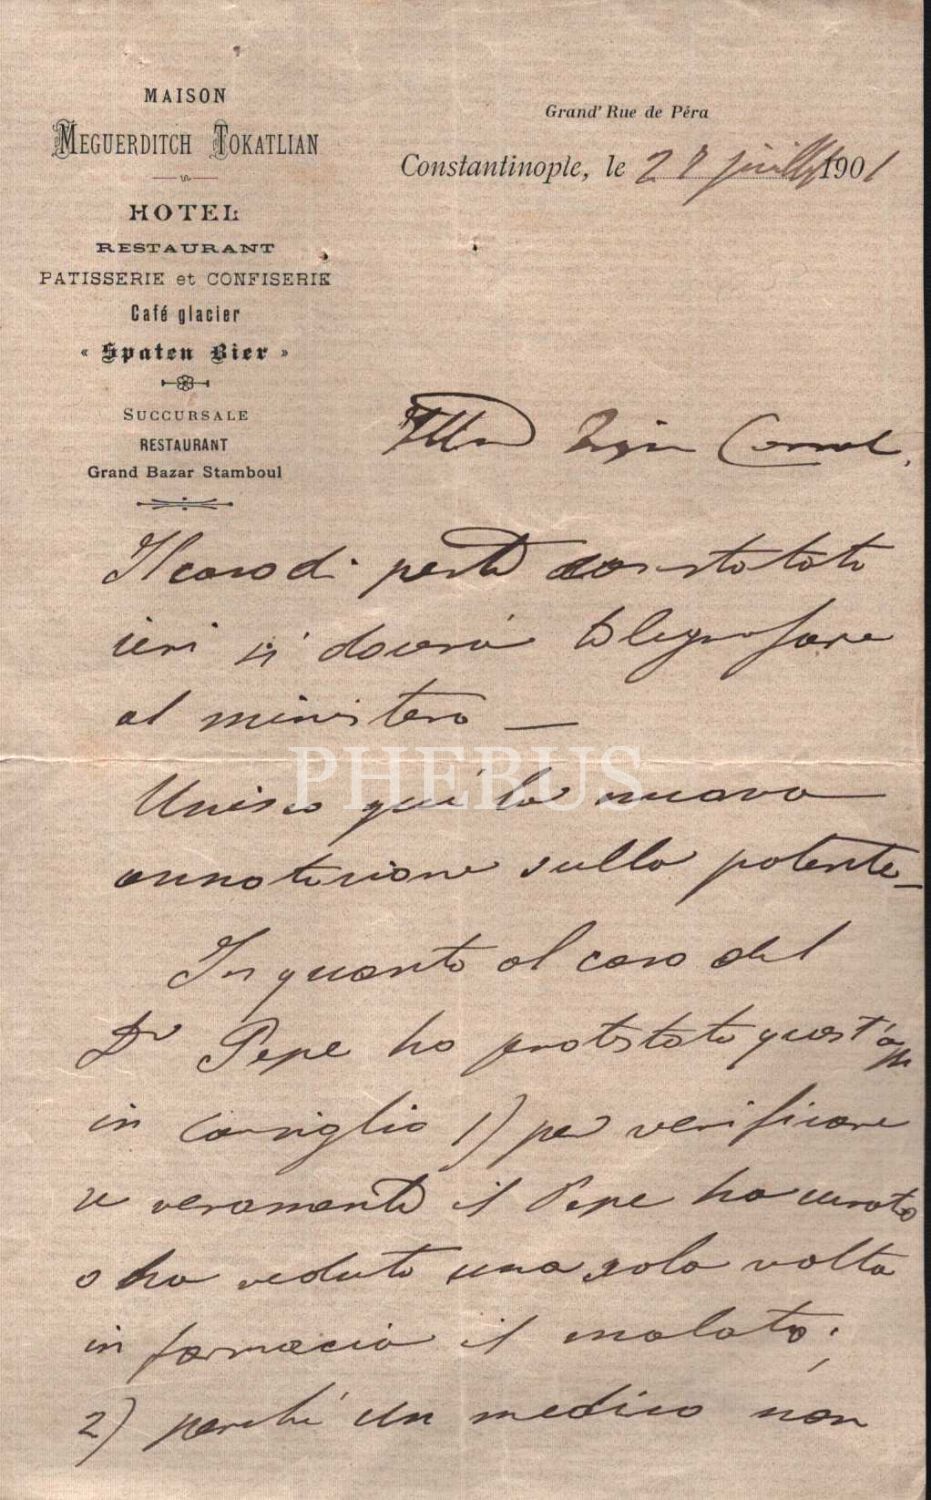 MAISON
MEGUERDITCH TOKATLIAN
HOTEL
RESTAURANT
PATISSERIE et CONFISERIE
Café glacier
« Spaten Bier »
SUCCURSALE
RESTAURANT
Grand Bazar Stamboul
Grand' Rue de Péra
Constantinople, le 27 juillet 1901
Illmo Sign Consol.
Il caso di peste constatato
ieri si dovrà telegrafare
al ministero —
Unisco qui la nuova
annotazione sulla patente —
In quanto al caso del
Dr Pepe ho protestato quest'oggi
in consiglio 1) per verificare
se veramente il Pepe ha curato
o ha veduto una sola volta
in farmacia il malato;
2) perchè un medico non
PHEBUS